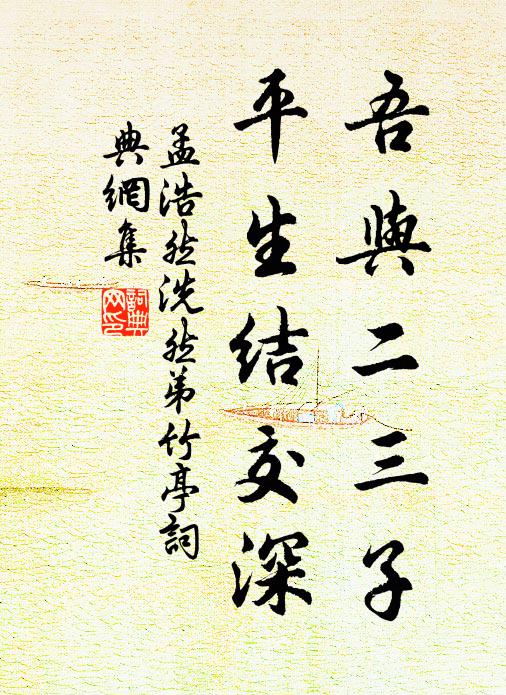 吾與二三子
平生結交深
孟浩然洗然弟竹亭詞
典網集
詞典網印